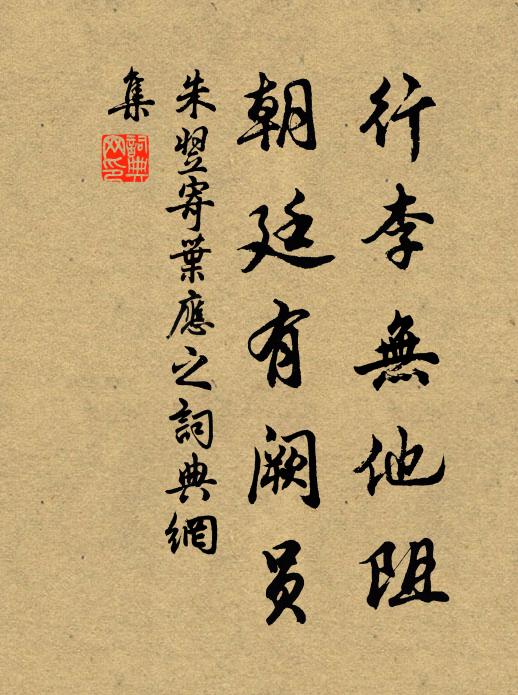 行李無他阻
朝廷有闕員
朱翌寄葉應之詞典網
集
詞典
网印